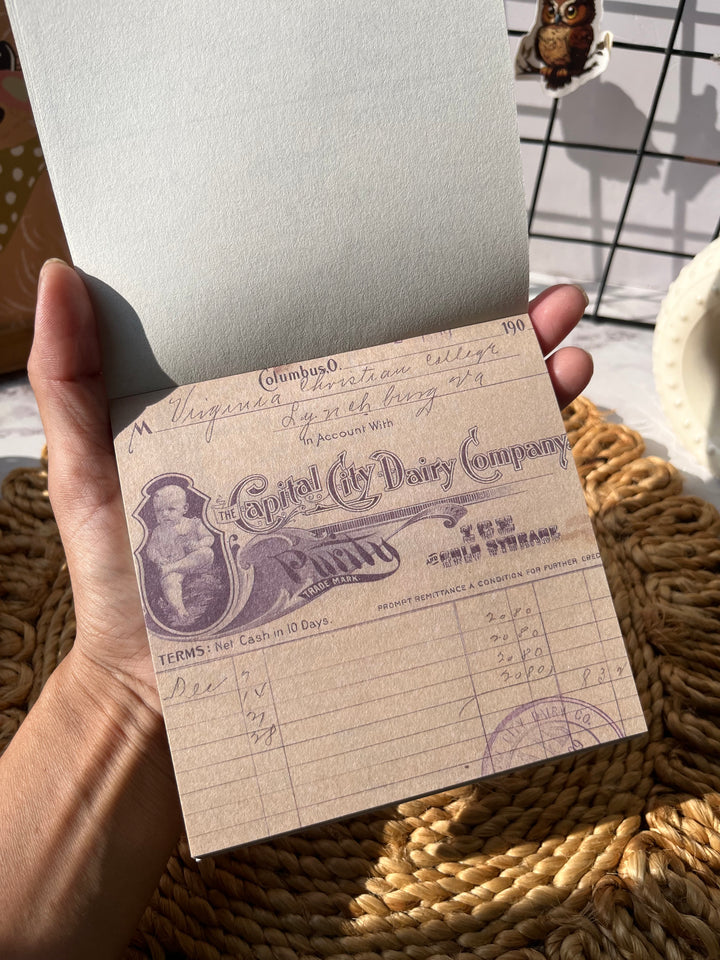 190
Columbus, O.
M Virginia Christian College
Lynchburg Va
In Account With
THE Capital City Dairy Company
Purity
TRADE MARK
ICE
AND COLD STORAGE
PROMPT REMITTANCE A CONDITION FOR FURTHER CRED
TERMS: Net Cash in 10 Days.
Dec 7 20 80
14 20 80
21 20 80
28 20 80 83 2
CITY DAIRY CO.